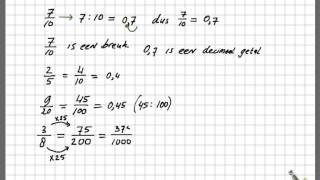 7/10 → 7 : 10 = 0,7 dus 7/10 = 0,7
7/10 is een breuk 0,7 is een decimaal getal
2/5 = 4/10 = 0,4
9/20 = 45/100 = 0,45 (45 : 100)
x25
3/8 = 75/200 = 374/1000
x25